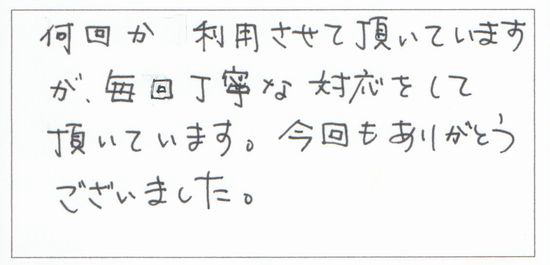 何回か 利用させて頂いています
が、毎回丁寧な対応をして
頂いています。今回もありがとう
ございました。